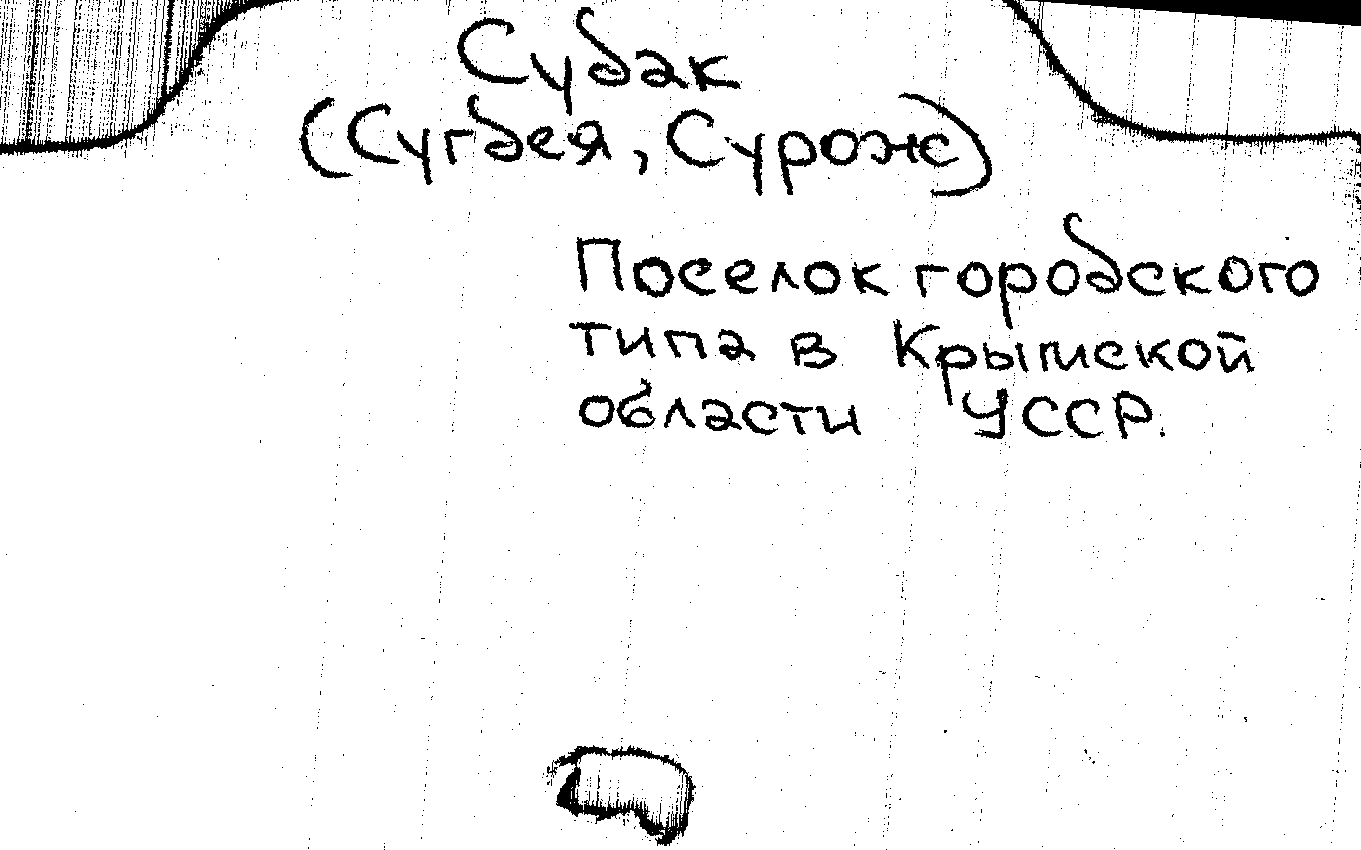 Судак
(Сугдея, Сурож)
Поселок городского
типа в Крымской
области УССР.